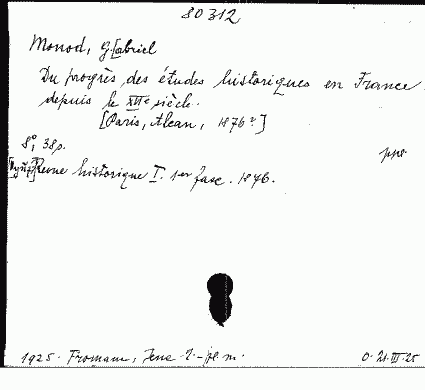 80312
Monod, G[abriel
Du progrès des études historiques en France
depuis le XVIe siècle.
[Paris, Alcan, 1876?]
8°, 38p.
ppe
Revue historique I. 1er fasc. 1876.
1925. Fromann, Jena
O. 21.III.25